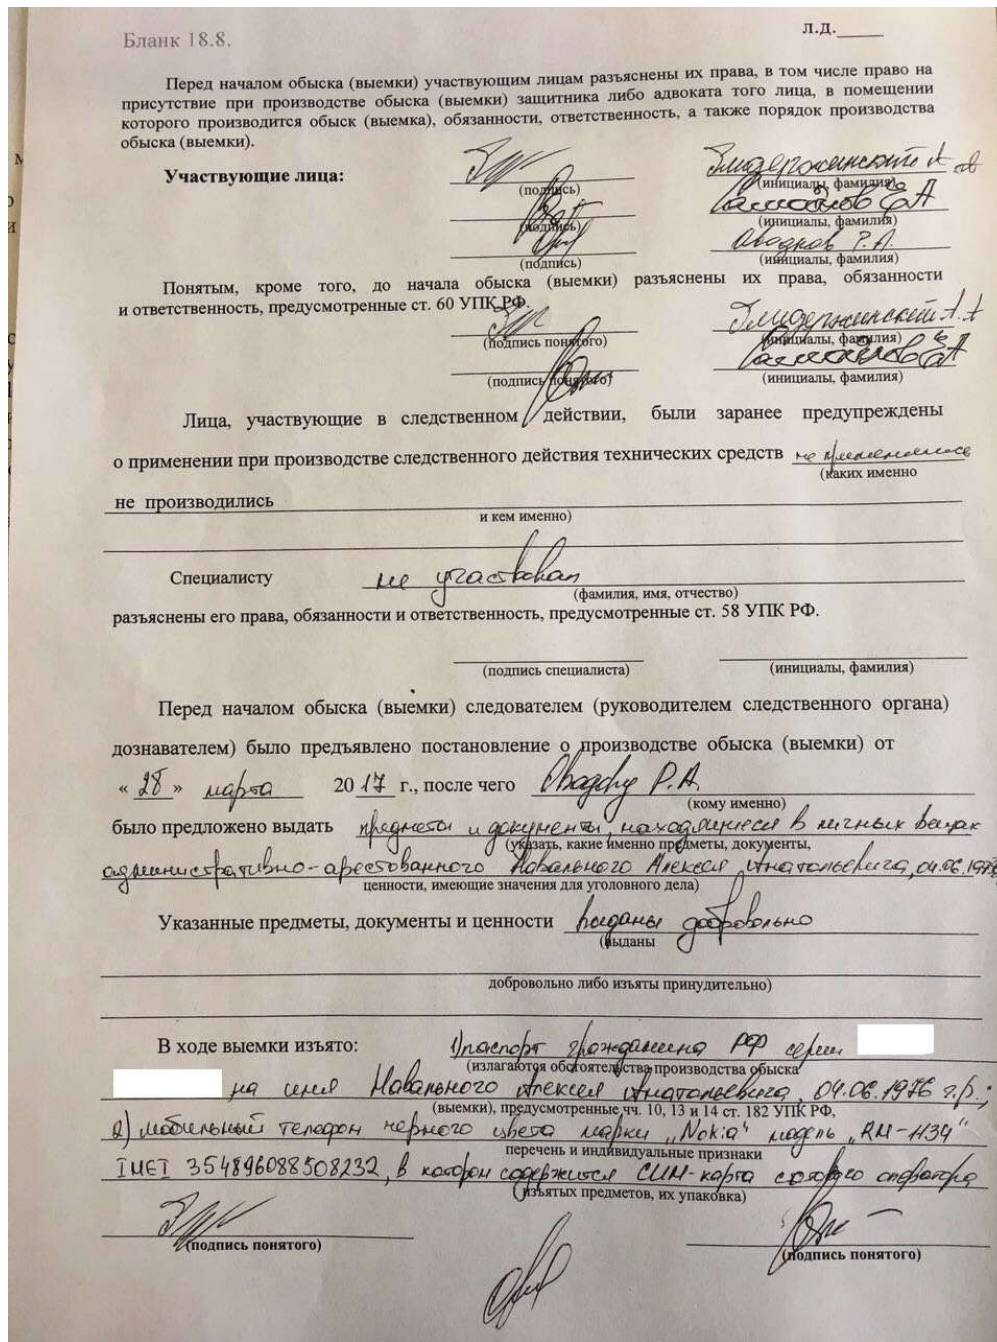 Бланк 18.8.
л.д.
Перед началом обыска (выемки) участвующим лицам разъяснены их права, в том числе право на
присутствие при производстве обыска (выемки) защитника либо адвоката того лица, в помещении
которого производится обыск (выемка), обязанности, ответственность, а также порядок производства
обыска (выемки).
Участвующие лица:
(подпись) (инициалы, фамилия)
(подпись) (инициалы, фамилия)
Оводков Р.А.
(подпись) (инициалы, фамилия)
Понятым, кроме того, до начала обыска (выемки) разъяснены их права, обязанности
и ответственность, предусмотренные ст. 60 УПК РФ.
(подпись понятого) (инициалы, фамилия)
(подпись понятого) (инициалы, фамилия)
Лица, участвующие в следственном действии, были заранее предупреждены
о применении при производстве следственного действия технических средств не применялись
(каких именно
не производились
и кем именно)
Специалисту не участвовал
(фамилия, имя, отчество)
разъяснены его права, обязанности и ответственность, предусмотренные ст. 58 УПК РФ.
(подпись специалиста) (инициалы, фамилия)
Перед началом обыска (выемки) следователем (руководителем следственного органа)
дознавателем) было предъявлено постановление о производстве обыска (выемки) от
« 28 » марта 2017 г., после чего Р.А.
(кому именно)
было предложено выдать предметы и документы, находящиеся в личных вещах
(указать, какие именно предметы, документы,
административно-арестованного Навального Алексея Анатольевича, 04.06.1976
ценности, имеющие значения для уголовного дела)
Указанные предметы, документы и ценности выданы добровольно
(выданы
добровольно либо изъяты принудительно)
В ходе выемки изъято: 1) паспорт гражданина РФ серии
(излагаются обстоятельства производства обыска
на имя Навального Алексея Анатольевича, 04.06.1976 г.р.;
(выемки), предусмотренные чч. 10, 13 и 14 ст. 182 УПК РФ,
2) мобильный телефон черного цвета марки „Nokia“ модель „RM-1134“
перечень и индивидуальные признаки
IMEI 354896088508232, в котором содержится СИМ-карта сотового оператора
(изъятых предметов, их упаковка)
(подпись понятого) (подпись понятого)